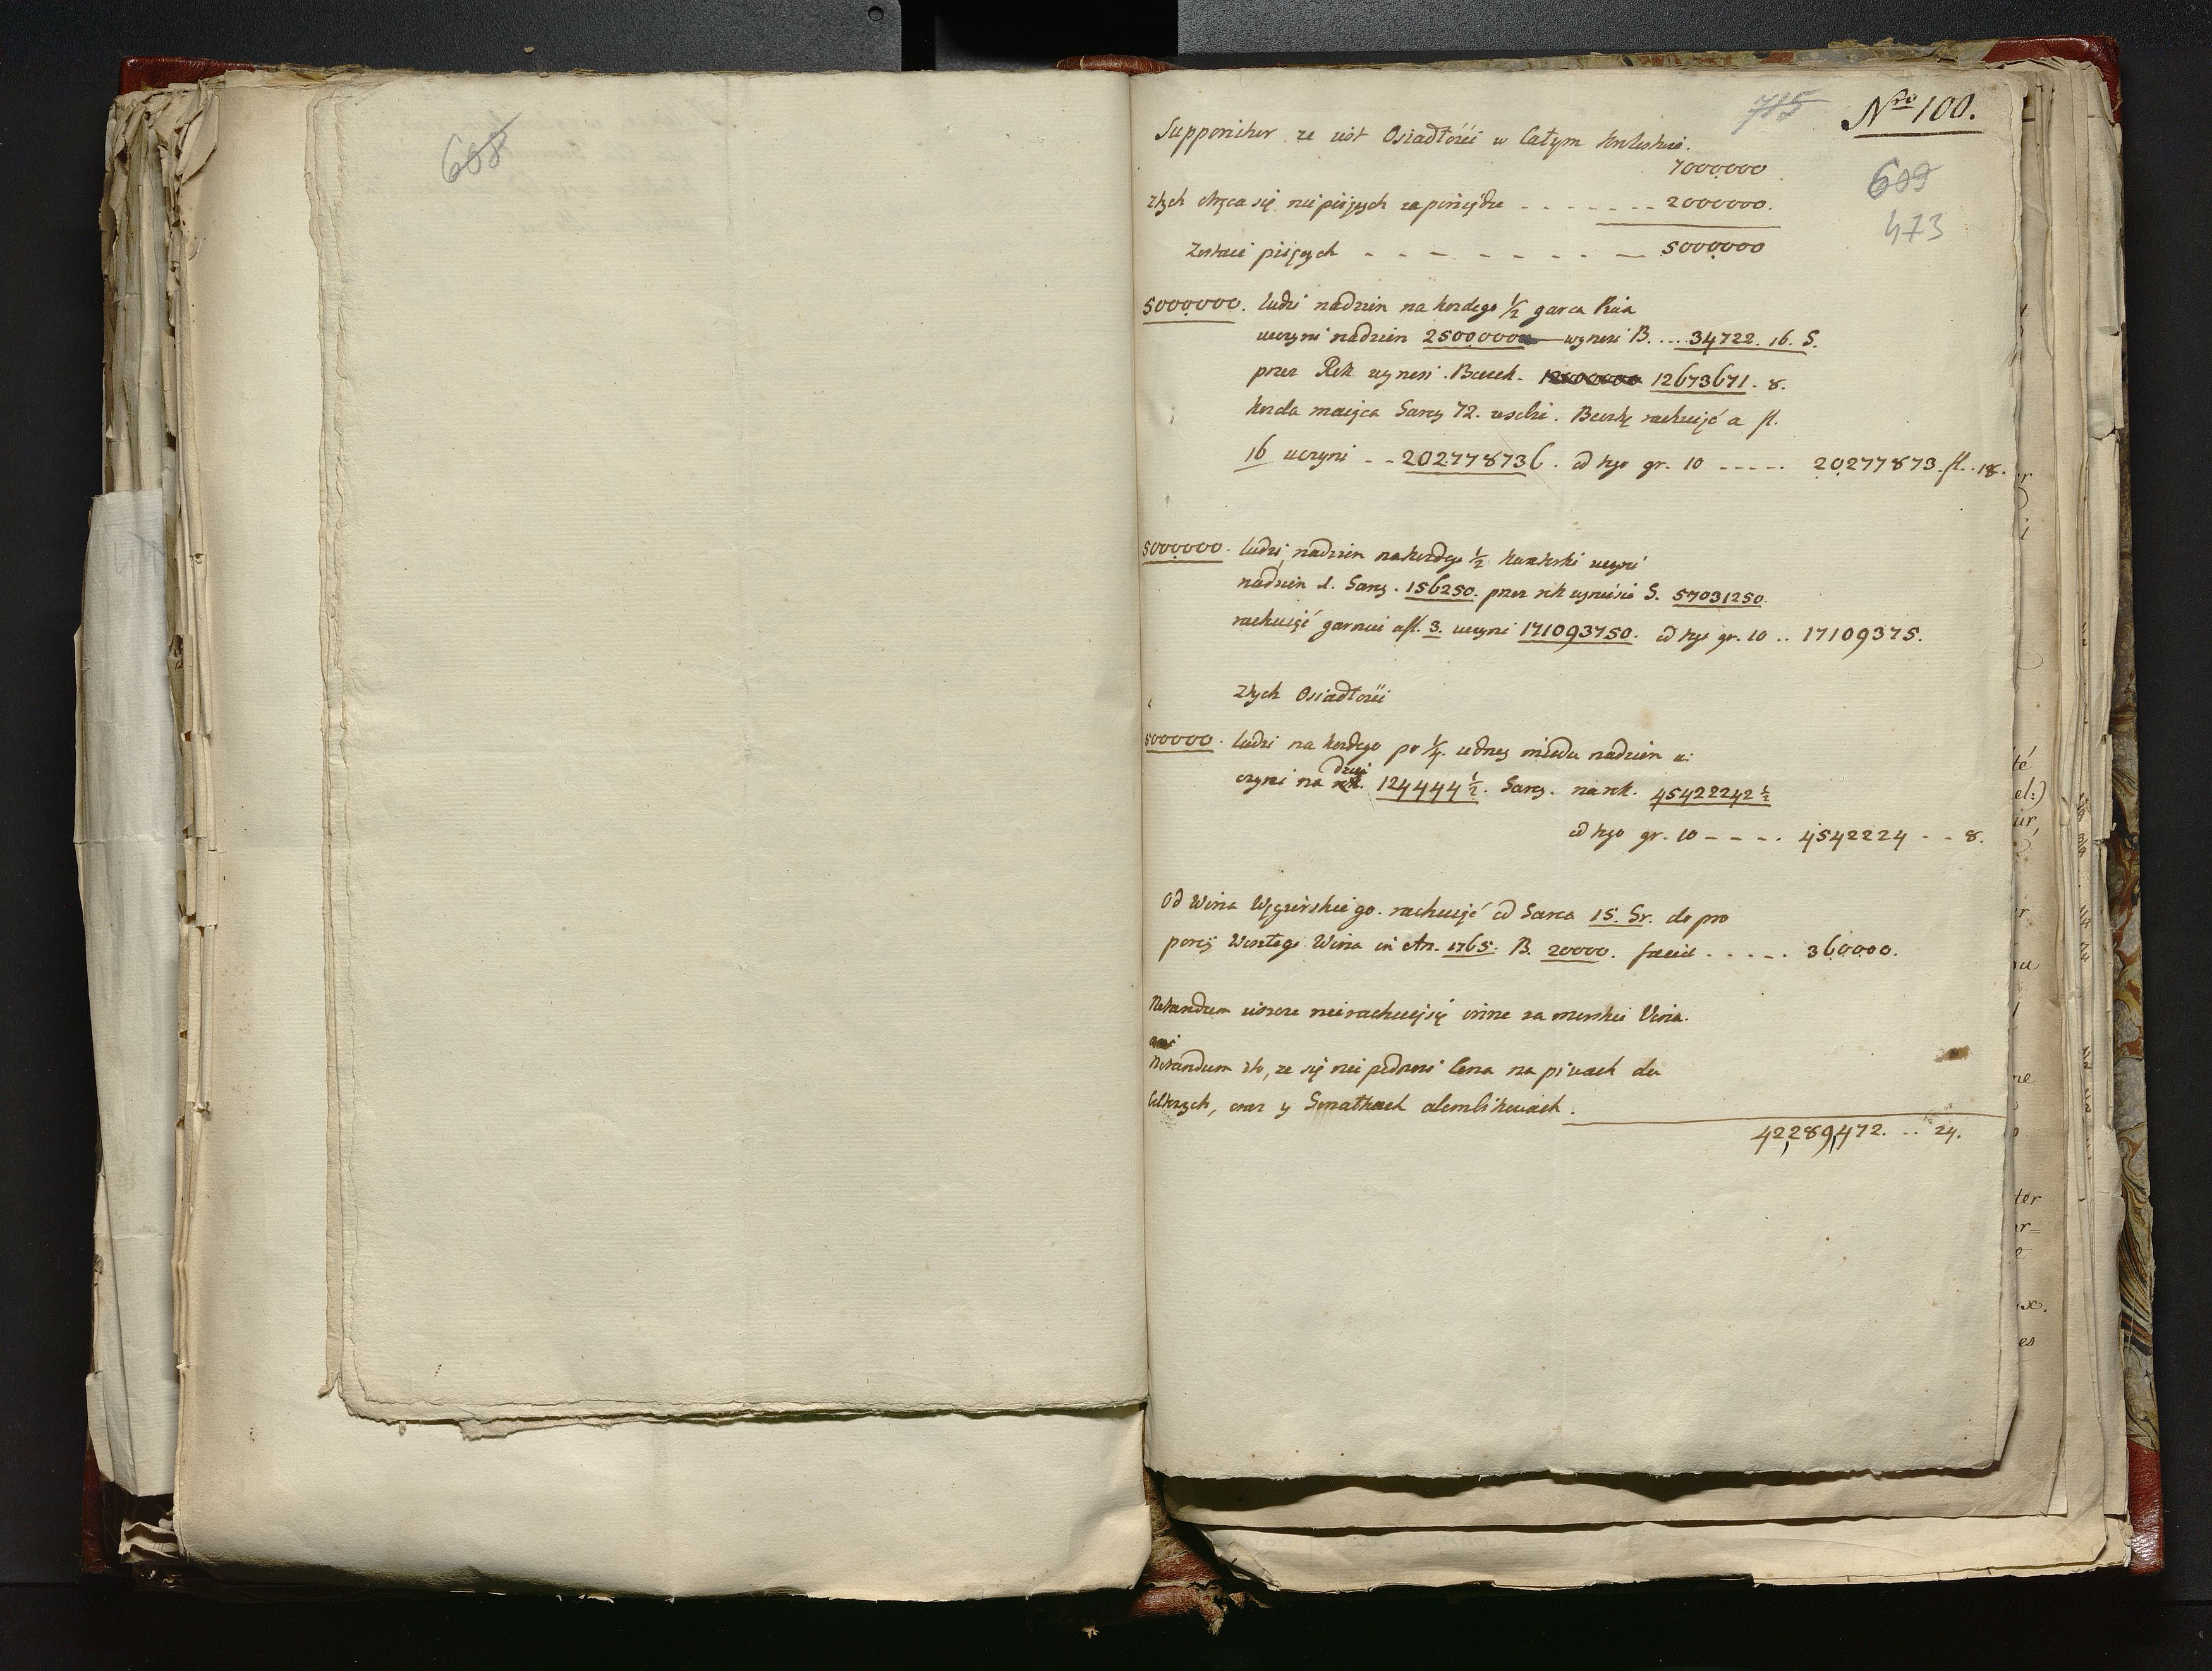 688
715 Nro 100.
Supponitur ze jest Osiadłości w Całym Królestwie.
7000000
609
z tych chcąc się nie pijących za pieniądze - - - - - - - 2000000.
473
Zostaie pijących - - - - - - - - 5000000
5000000. ludzi na dzien na kozdego ½ garca Piwa
uczyni na dzien 2500000 — wyniesi B. ... 34722. 16. G.
przez Rok wyniesi. Beczek. 12673671. 8.
kozda maiąca Garcy 72. Beczkę rachuiąć a fl.
16 uczyni - - 202778736. od tego gr. 10 - - - - - 20277873. fl. 18.
5000000. ludzi na dzien na kozdego ½ kwaterki uczyni
na dzien Garcy. 156250. przez rok wyniesie G. 57031250.
rachuiąć garniec a fl. 3. uczyni 171093750. od tego gr. 10 .. 17109375.
z tych Osiadłości
500000. ludzi na kozdego po ¼. miodu na dzien u:
czyni na dzień 124444 ½. Garcy. na rok. 45422242 ½
od tego gr. 10 - - - - . 4542224 - - 8.
Od Wina Węgierskiego. rachuiąć od Garca 15. Gr. do pro
porcyi Weszłego Wina in An. 1765. B. 20000. facit - - - - - 360000.
Notandum nierachuią się inne zamorskie Wina.
Notandum to, ze się nie podnosi Cena na piwach du
beltowych, oraz y Gorzałkach alembikowych.
42,289,472. .. 24.